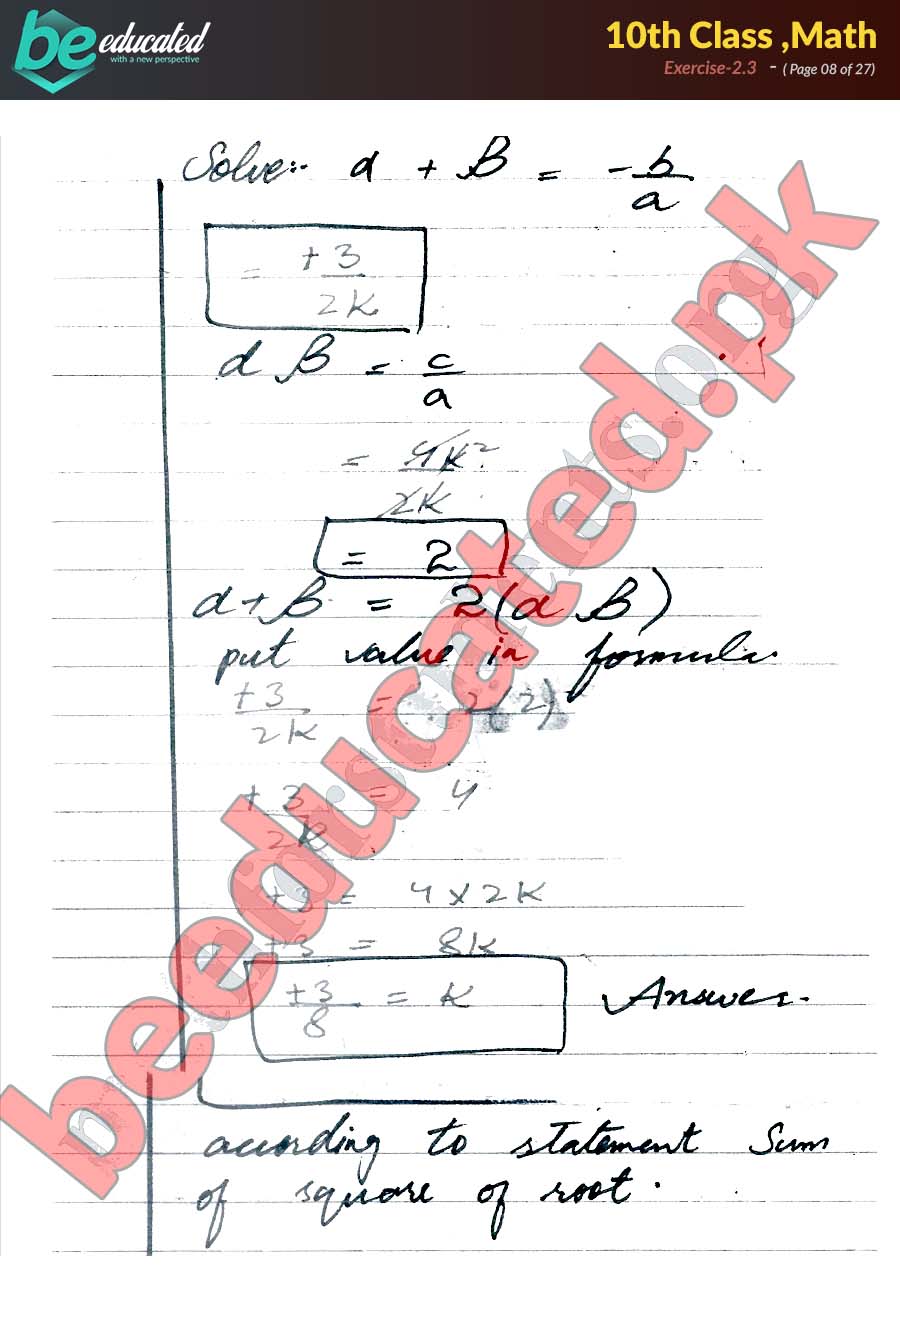 be educated
with a new perspective
10th Class ,Math
Exercise-2.3 - ( Page 08 of 27)
Solve:- α + β = -b/a
= +3/2K
αβ = c/a
= 4K²/2K
= 2
α+β = 2(αβ)
put value in formula.
+3/2K = 2(2)
+3/2K = 4
+3 = 4×2K
+3 = 8K
+3/8 = K Answer.
according to statement Sum
of square of root.
beeducated.pk